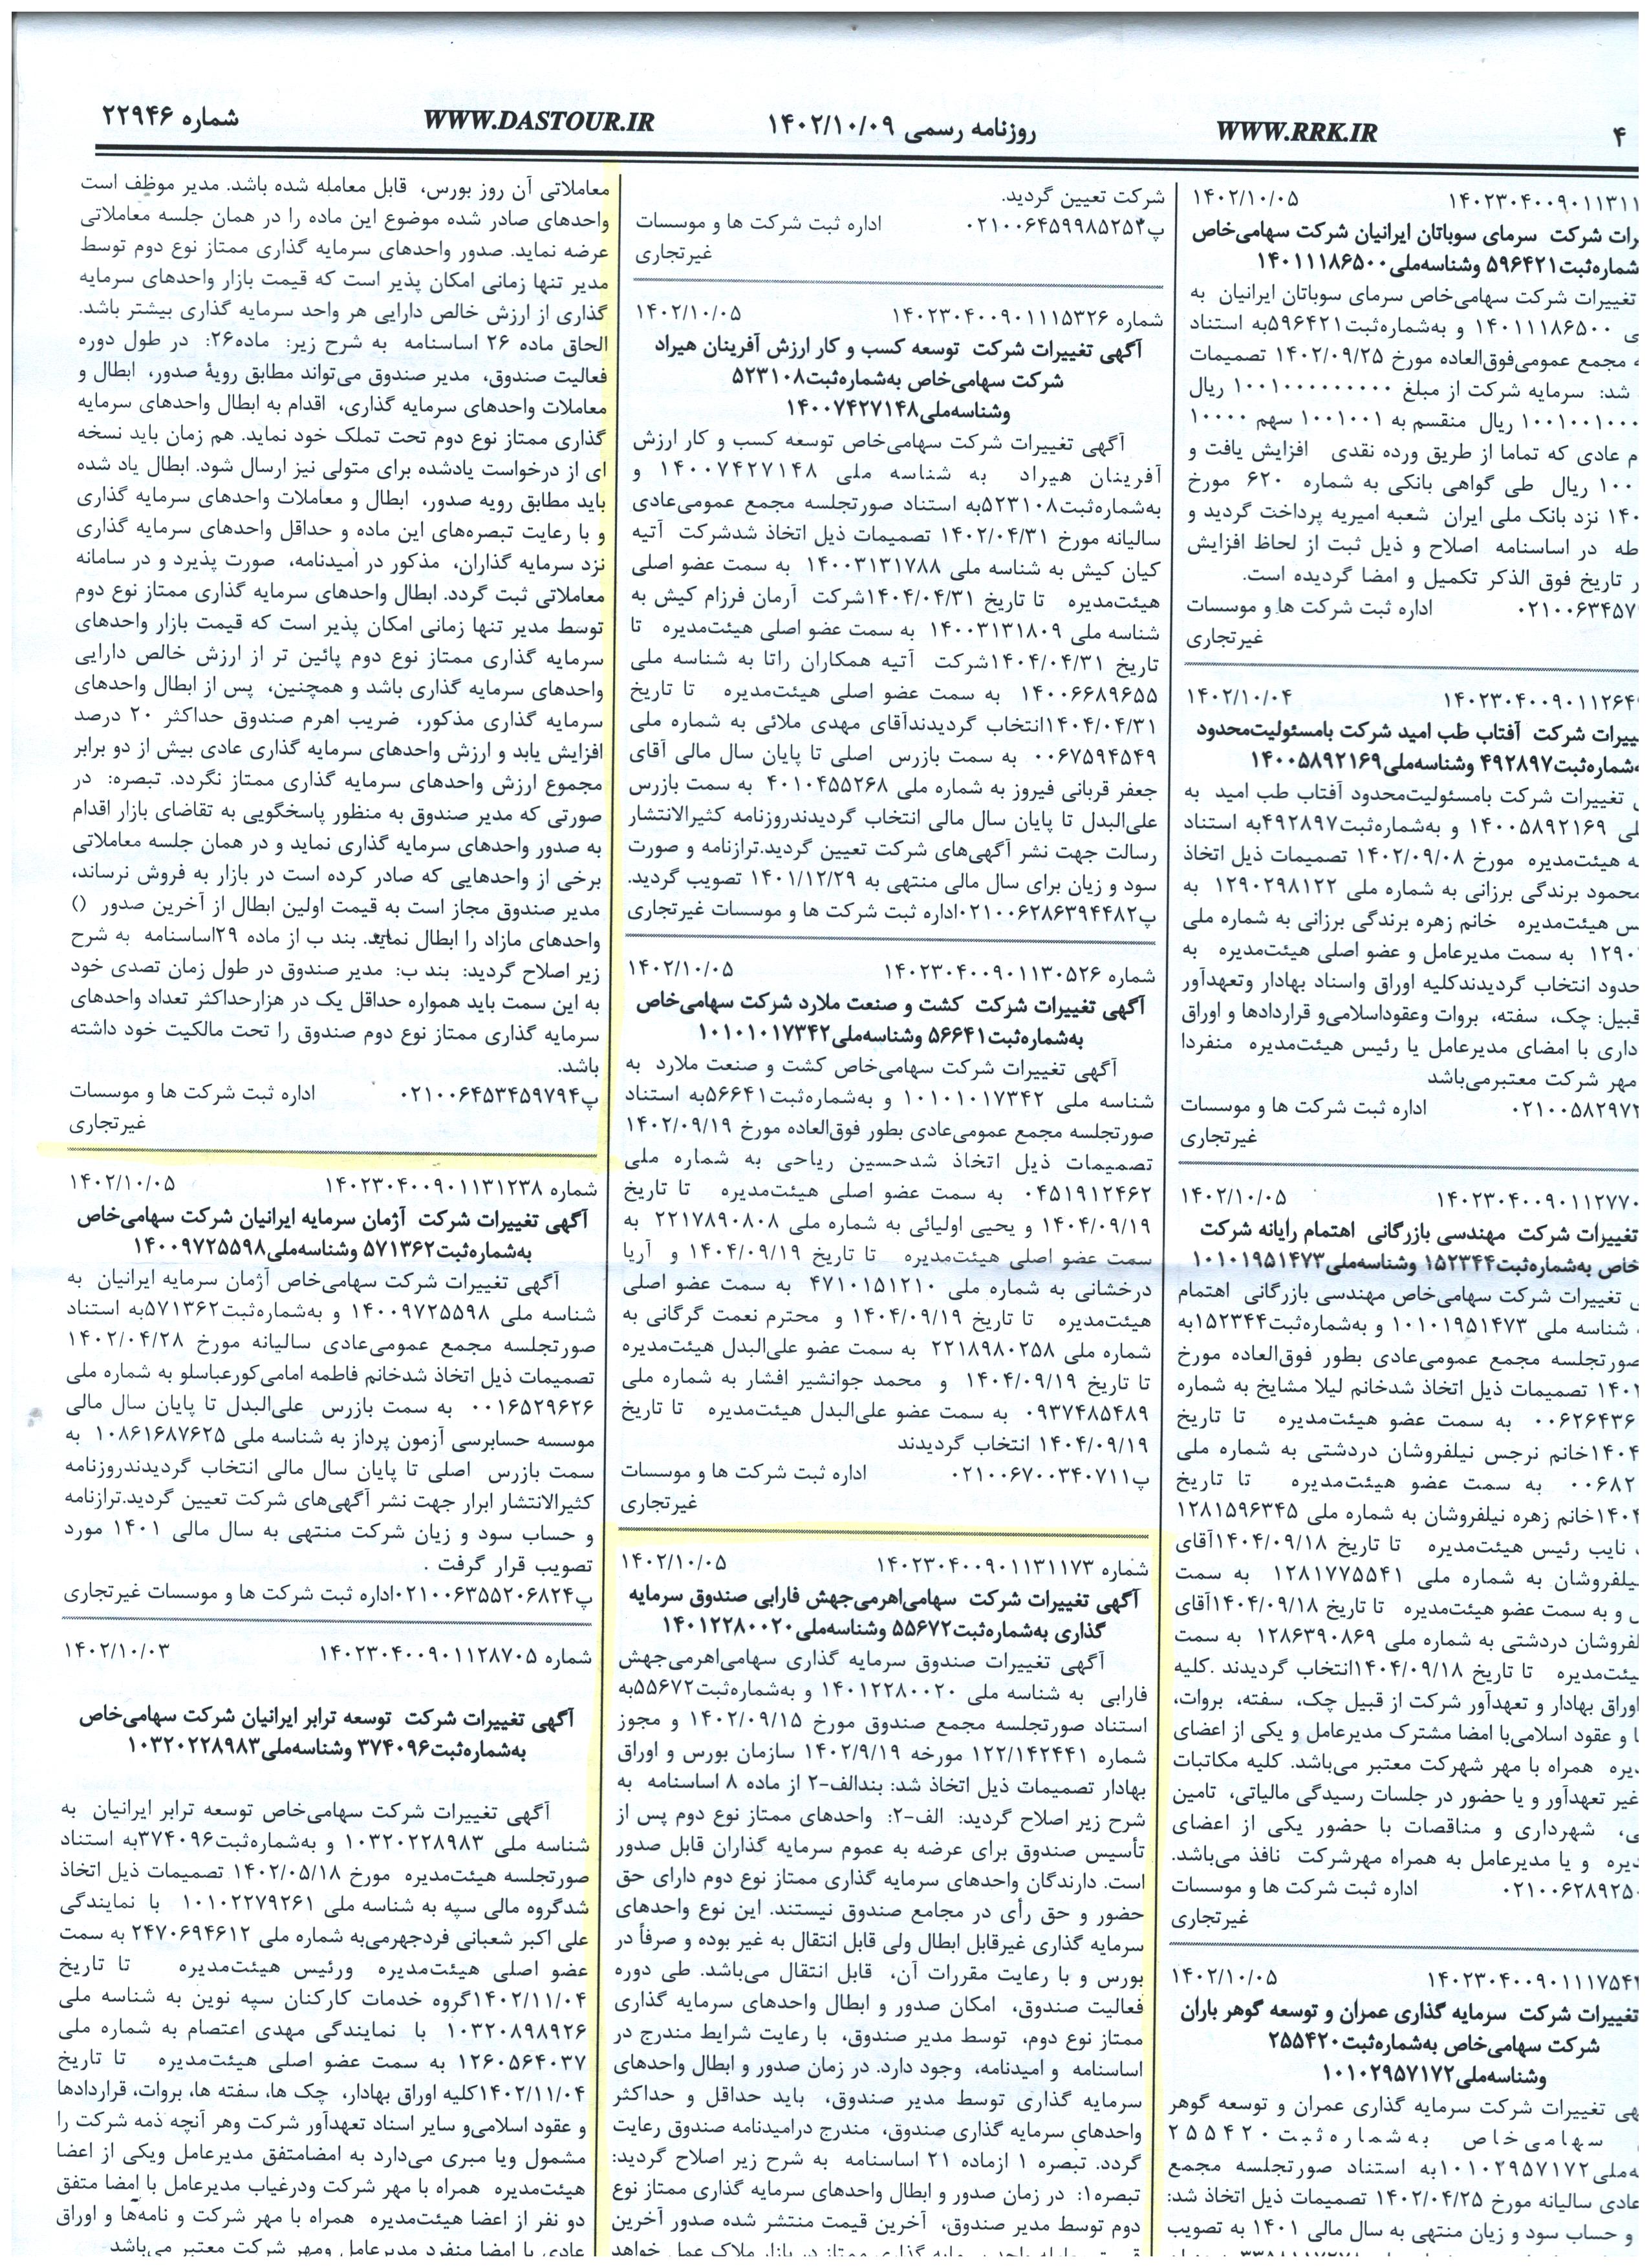 ۴
WWW.RRK.IR
روزنامه رسمی ۱۴۰۲/۱۰/۰۹
WWW.DASTOUR.IR
شماره ۲۲۹۴۶
۱۴۰۲۳۰۴۰۰۹۰۱۱۳۱۱ ۱۴۰۲/۱۰/۰۵
شرکت سرمای سوباتان ایرانیان شرکت سهامی‌خاص
شماره‌ثبت۵۹۶۴۲۱ وشناسه‌ملی۱۴۰۱۱۱۸۶۵۰۰
تغییرات شرکت سهامی‌خاص سرمای سوباتان ایرانیان به
۱۴۰۱۱۱۸۶۵۰۰ و به‌شماره‌ثبت۵۹۶۴۲۱به استناد
مجمع عمومی‌فوق‌العاده مورخ ۱۴۰۲/۰۹/۲۵ تصمیمات
شد: سرمایه شرکت از مبلغ ۱۰۰۱۰۰۰۰۰۰۰۰۰ ریال
ریال منقسم به ۱۰۰۱۰۰۱ سهم ۱۰۰۰۰
عادی که تماما از طریق ورده نقدی افزایش یافت و
ریال طی گواهی بانکی به شماره ۶۲۰ مورخ
نزد بانک ملی ایران شعبه امیریه پرداخت گردید و
در اساسنامه اصلاح و ذیل ثبت از لحاظ افزایش
تاریخ فوق الذکر تکمیل و امضا گردیده است.
۰۲۱۰۰۶۳۴۵۷ اداره ثبت شرکت ها و موسسات
غیرتجاری
۱۴۰۲۳۰۴۰۰۹۰۱۱۲۶۴ ۱۴۰۲/۱۰/۰۴
شرکت آفتاب طب امید شرکت بامسئولیت‌محدود
شماره‌ثبت۴۹۲۸۹۷ وشناسه‌ملی۱۴۰۰۵۸۹۲۱۶۹
تغییرات شرکت بامسئولیت‌محدود آفتاب طب امید به
۱۴۰۰۵۸۹۲۱۶۹ و به‌شماره‌ثبت۴۹۲۸۹۷به استناد
هیئت‌مدیره مورخ ۱۴۰۲/۰۹/۰۸ تصمیمات ذیل اتخاذ
محمود برندگی برزانی به شماره ملی ۱۲۹۰۲۹۸۱۲۲ به
هیئت‌مدیره خانم زهره برندگی برزانی به شماره ملی
به سمت مدیرعامل و عضو اصلی هیئت‌مدیره به
انتخاب گردیدندکلیه اوراق واسناد بهادار وتعهدآور
قبیل: چک، سفته، بروات وعقوداسلامی‌و قراردادها و اوراق
با امضای مدیرعامل یا رئیس هیئت‌مدیره منفردا
مهر شرکت معتبرمی‌باشد
۰۲۱۰۰۵۸۲۹۷۲ اداره ثبت شرکت ها و موسسات
غیرتجاری
۱۴۰۲۳۰۴۰۰۹۰۱۱۲۷۷۰ ۱۴۰۲/۱۰/۰۵
تغییرات شرکت مهندسی بازرگانی اهتمام رایانه شرکت
به‌شماره‌ثبت۱۵۲۳۴۴ وشناسه‌ملی۱۰۱۰۱۹۵۱۴۷۳
تغییرات شرکت سهامی‌خاص مهندسی بازرگانی اهتمام
شناسه ملی ۱۰۱۰۱۹۵۱۴۷۳ و به‌شماره‌ثبت۱۵۲۳۴۴به
صورتجلسه مجمع عمومی‌عادی بطور فوق‌العاده مورخ
تصمیمات ذیل اتخاذ شدخانم لیلا مشایخ به شماره
۰۰۶۲۶۴۳۶ به سمت عضو هیئت‌مدیره تا تاریخ
خانم نرجس نیلفروشان دردشتی به شماره ملی
۰۰۶۸۲ به سمت عضو هیئت‌مدیره تا تاریخ
خانم زهره نیلفروشان به شماره ملی ۱۲۸۱۵۹۶۳۴۵
نایب رئیس هیئت‌مدیره تا تاریخ ۱۴۰۴/۰۹/۱۸آقای
نیلفروشان به شماره ملی ۱۲۸۱۷۷۵۵۴۱ به سمت
و به سمت عضو هیئت‌مدیره تا تاریخ ۱۴۰۴/۰۹/۱۸آقای
دردشتی به شماره ملی ۱۲۸۶۳۹۰۸۶۹ به سمت
تا تاریخ ۱۴۰۴/۰۹/۱۸انتخاب گردیدند .کلیه
اوراق بهادار و تعهدآور شرکت از قبیل چک، سفته، بروات،
و عقود اسلامی‌با امضا مشترک مدیرعامل و یکی از اعضای
همراه با مهر شهرکت معتبر می‌باشد. کلیه مکاتبات
غیر تعهدآور و یا حضور در جلسات رسیدگی مالیاتی، تامین
شهرداری و مناقصات با حضور یکی از اعضای
و یا مدیرعامل به همراه مهرشرکت نافذ می‌باشد.
۰۲۱۰۰۶۲۸۹۲۵ اداره ثبت شرکت ها و موسسات
غیرتجاری
۱۴۰۲۳۰۴۰۰۹۰۱۱۱۷۵۴ ۱۴۰۲/۱۰/۰۵
تغییرات شرکت سرمایه گذاری عمران و توسعه گوهر باران
شرکت سهامی‌خاص به‌شماره‌ثبت۲۵۵۴۲۰
وشناسه‌ملی۱۰۱۰۲۹۵۷۱۷۲
تغییرات شرکت سرمایه گذاری عمران و توسعه گوهر
سهامی‌خاص به‌شماره‌ثبت۲۵۵۴۲۰
۱۰۱۰۲۹۵۷۱۷۲به استناد صورتجلسه مجمع
عادی سالیانه مورخ ۱۴۰۲/۰۴/۲۵ تصمیمات ذیل اتخاذ شد:
و حساب سود و زیان منتهی به سال مالی ۱۴۰۱ به تصویب
شرکت تعیین گردید.
پ۰۲۱۰۰۶۴۵۹۹۸۵۲۵۴ اداره ثبت شرکت ها و موسسات
غیرتجاری
شماره ۱۴۰۲۳۰۴۰۰۹۰۱۱۱۵۳۲۶ ۱۴۰۲/۱۰/۰۵
آگهی تغییرات شرکت توسعه کسب و کار ارزش آفرینان هیراد
شرکت سهامی‌خاص به‌شماره‌ثبت۵۲۳۱۰۸
وشناسه‌ملی۱۴۰۰۷۴۲۷۱۴۸
آگهی تغییرات شرکت سهامی‌خاص توسعه کسب و کار ارزش
آفرینان هیراد به شناسه ملی ۱۴۰۰۷۴۲۷۱۴۸ و
به‌شماره‌ثبت۵۲۳۱۰۸به استناد صورتجلسه مجمع عمومی‌عادی
سالیانه مورخ ۱۴۰۲/۰۴/۳۱ تصمیمات ذیل اتخاذ شدشرکت آتیه
کیان کیش به شناسه ملی ۱۴۰۰۳۱۳۱۷۸۸ به سمت عضو اصلی
هیئت‌مدیره تا تاریخ ۱۴۰۴/۰۴/۳۱شرکت آرمان فرزام کیش به
شناسه ملی ۱۴۰۰۳۱۳۱۸۰۹ به سمت عضو اصلی هیئت‌مدیره تا
تاریخ ۱۴۰۴/۰۴/۳۱شرکت آتیه همکاران راتا به شناسه ملی
۱۴۰۰۶۶۸۹۶۵۵ به سمت عضو اصلی هیئت‌مدیره تا تاریخ
۱۴۰۴/۰۴/۳۱انتخاب گردیدندآقای مهدی ملائی به شماره ملی
۰۰۶۷۵۹۴۵۴۹ به سمت بازرس اصلی تا پایان سال مالی آقای
جعفر قربانی فیروز به شماره ملی ۴۰۱۰۴۵۵۲۶۸ به سمت بازرس
علی‌البدل تا پایان سال مالی انتخاب گردیدندروزنامه کثیرالانتشار
رسالت جهت نشر آگهی‌های شرکت تعیین گردید.ترازنامه و صورت
سود و زیان برای سال مالی منتهی به ۱۴۰۱/۱۲/۲۹ تصویب گردید.
پ۰۲۱۰۰۶۲۸۶۳۹۴۴۸۲اداره ثبت شرکت ها و موسسات غیرتجاری
شماره ۱۴۰۲۳۰۴۰۰۹۰۱۱۳۰۵۲۶ ۱۴۰۲/۱۰/۰۵
آگهی تغییرات شرکت کشت و صنعت ملارد شرکت سهامی‌خاص
به‌شماره‌ثبت۵۶۶۴۱ وشناسه‌ملی۱۰۱۰۱۰۱۷۳۴۲
آگهی تغییرات شرکت سهامی‌خاص کشت و صنعت ملارد به
شناسه ملی ۱۰۱۰۱۰۱۷۳۴۲ و به‌شماره‌ثبت۵۶۶۴۱به استناد
صورتجلسه مجمع عمومی‌عادی بطور فوق‌العاده مورخ ۱۴۰۲/۰۹/۱۹
تصمیمات ذیل اتخاذ شدحسین ریاحی به شماره ملی
۰۴۵۱۹۱۲۴۶۲ به سمت عضو اصلی هیئت‌مدیره تا تاریخ
۱۴۰۴/۰۹/۱۹ و یحیی اولیائی به شماره ملی ۲۲۱۷۸۹۰۸۰۸ به
سمت عضو اصلی هیئت‌مدیره تا تاریخ ۱۴۰۴/۰۹/۱۹ و آریا
درخشانی به شماره ملی ۴۷۱۰۱۵۱۲۱۰ به سمت عضو اصلی
هیئت‌مدیره تا تاریخ ۱۴۰۴/۰۹/۱۹ و محترم نعمت گرگانی به
شماره ملی ۲۲۱۸۹۸۰۲۵۸ به سمت عضو علی‌البدل هیئت‌مدیره
تا تاریخ ۱۴۰۴/۰۹/۱۹ و محمد جوانشیر افشار به شماره ملی
۰۹۳۷۴۸۵۴۸۹ به سمت عضو علی‌البدل هیئت‌مدیره تا تاریخ
۱۴۰۴/۰۹/۱۹ انتخاب گردیدند
پ۰۲۱۰۰۶۷۰۰۳۴۰۷۱۱ اداره ثبت شرکت ها و موسسات
غیرتجاری
شماره ۱۴۰۲۳۰۴۰۰۹۰۱۱۳۱۱۷۳ ۱۴۰۲/۱۰/۰۵
آگهی تغییرات شرکت سهامی‌اهرمی‌جهش فارابی صندوق سرمایه
گذاری به‌شماره‌ثبت۵۵۶۷۲ وشناسه‌ملی۱۴۰۱۲۲۸۰۰۲۰
آگهی تغییرات صندوق سرمایه گذاری سهامی‌اهرمی‌جهش
فارابی به شناسه ملی ۱۴۰۱۲۲۸۰۰۲۰ و به‌شماره‌ثبت۵۵۶۷۲به
استناد صورتجلسه مجمع صندوق مورخ ۱۴۰۲/۰۹/۱۵ و مجوز
شماره ۱۲۲/۱۴۲۴۴۱ مورخه ۱۴۰۲/۹/۱۹ سازمان بورس و اوراق
بهادار تصمیمات ذیل اتخاذ شد: بندالف-۲ از ماده ۸ اساسنامه به
شرح زیر اصلاح گردید: الف-۲: واحدهای ممتاز نوع دوم پس از
تأسیس صندوق برای عرضه به عموم سرمایه گذاران قابل صدور
است. دارندگان واحدهای سرمایه گذاری ممتاز نوع دوم دارای حق
حضور و حق رأی در مجامع صندوق نیستند. این نوع واحدهای
سرمایه گذاری غیرقابل ابطال ولی قابل انتقال به غیر بوده و صرفاً در
بورس و با رعایت مقررات آن، قابل انتقال می‌باشد. طی دوره
فعالیت صندوق، امکان صدور و ابطال واحدهای سرمایه گذاری
ممتاز نوع دوم، توسط مدیر صندوق، با رعایت شرایط مندرج در
اساسنامه و امیدنامه، وجود دارد. در زمان صدور و ابطال واحدهای
سرمایه گذاری توسط مدیر صندوق، باید حداقل و حداکثر
واحدهای سرمایه گذاری صندوق، مندرج درامیدنامه صندوق رعایت
گردد. تبصره ۱ ازماده ۲۱ اساسنامه به شرح زیر اصلاح گردید:
تبصره۱: در زمان صدور و ابطال واحدهای سرمایه گذاری ممتاز نوع
دوم توسط مدیر صندوق، آخرین قیمت منتشر شده صدور آخرین
معاملاتی آن روز بورس، قابل معامله شده باشد. مدیر موظف است
واحدهای صادر شده موضوع این ماده را در همان جلسه معاملاتی
عرضه نماید. صدور واحدهای سرمایه گذاری ممتاز نوع دوم توسط
مدیر تنها زمانی امکان پذیر است که قیمت بازار واحدهای سرمایه
گذاری از ارزش خالص دارایی هر واحد سرمایه گذاری بیشتر باشد.
الحاق ماده ۲۶ اساسنامه به شرح زیر: ماده۲۶: در طول دوره
فعالیت صندوق، مدیر صندوق می‌تواند مطابق رویهٔ صدور، ابطال و
معاملات واحدهای سرمایه گذاری، اقدام به ابطال واحدهای سرمایه
گذاری ممتاز نوع دوم تحت تملک خود نماید. هم زمان باید نسخه
ای از درخواست یادشده برای متولی نیز ارسال شود. ابطال یاد شده
باید مطابق رویه صدور، ابطال و معاملات واحدهای سرمایه گذاری
و با رعایت تبصره‌های این ماده و حداقل واحدهای سرمایه گذاری
نزد سرمایه گذاران، مذکور در امیدنامه، صورت پذیرد و در سامانه
معاملاتی ثبت گردد. ابطال واحدهای سرمایه گذاری ممتاز نوع دوم
توسط مدیر تنها زمانی امکان پذیر است که قیمت بازار واحدهای
سرمایه گذاری ممتاز نوع دوم پائین تر از ارزش خالص دارایی
واحدهای سرمایه گذاری باشد و همچنین، پس از ابطال واحدهای
سرمایه گذاری مذکور، ضریب اهرم صندوق حداکثر ۲۰ درصد
افزایش یابد و ارزش واحدهای سرمایه گذاری عادی بیش از دو برابر
مجموع ارزش واحدهای سرمایه گذاری ممتاز نگردد. تبصره: در
صورتی که مدیر صندوق به منظور پاسخگویی به تقاضای بازار اقدام
به صدور واحدهای سرمایه گذاری نماید و در همان جلسه معاملاتی
برخی از واحدهایی که صادر کرده است در بازار به فروش نرساند،
مدیر صندوق مجاز است به قیمت اولین ابطال از آخرین صدور ()
واحدهای مازاد را ابطال نماید. بند ب از ماده ۲۹اساسنامه به شرح
زیر اصلاح گردید: بند ب: مدیر صندوق در طول زمان تصدی خود
به این سمت باید همواره حداقل یک در هزارحداکثر تعداد واحدهای
سرمایه گذاری ممتاز نوع دوم صندوق را تحت مالکیت خود داشته
باشد.
پ۰۲۱۰۰۶۴۵۳۴۵۹۷۹۴ اداره ثبت شرکت ها و موسسات
غیرتجاری
شماره ۱۴۰۲۳۰۴۰۰۹۰۱۱۳۱۲۳۸ ۱۴۰۲/۱۰/۰۵
آگهی تغییرات شرکت آژمان سرمایه ایرانیان شرکت سهامی‌خاص
به‌شماره‌ثبت۵۷۱۳۶۲ وشناسه‌ملی۱۴۰۰۹۷۲۵۵۹۸
آگهی تغییرات شرکت سهامی‌خاص آژمان سرمایه ایرانیان به
شناسه ملی ۱۴۰۰۹۷۲۵۵۹۸ و به‌شماره‌ثبت۵۷۱۳۶۲به استناد
صورتجلسه مجمع عمومی‌عادی سالیانه مورخ ۱۴۰۲/۰۴/۲۸
تصمیمات ذیل اتخاذ شدخانم فاطمه امامی‌کورعباسلو به شماره ملی
۰۰۱۶۵۲۹۶۲۶ به سمت بازرس علی‌البدل تا پایان سال مالی
موسسه حسابرسی آزمون پرداز به شناسه ملی ۱۰۸۶۱۶۸۷۶۲۵ به
سمت بازرس اصلی تا پایان سال مالی انتخاب گردیدندروزنامه
کثیرالانتشار ابرار جهت نشر آگهی‌های شرکت تعیین گردید.ترازنامه
و حساب سود و زیان شرکت منتهی به سال مالی ۱۴۰۱ مورد
تصویب قرار گرفت .
پ۰۲۱۰۰۶۳۵۵۲۰۶۸۲۴اداره ثبت شرکت ها و موسسات غیرتجاری
شماره ۱۴۰۲۳۰۴۰۰۹۰۱۱۲۸۷۰۵ ۱۴۰۲/۱۰/۰۳
آگهی تغییرات شرکت توسعه ترابر ایرانیان شرکت سهامی‌خاص
به‌شماره‌ثبت۳۷۴۰۹۶ وشناسه‌ملی۱۰۳۲۰۲۲۸۹۸۳
آگهی تغییرات شرکت سهامی‌خاص توسعه ترابر ایرانیان به
شناسه ملی ۱۰۳۲۰۲۲۸۹۸۳ و به‌شماره‌ثبت۳۷۴۰۹۶به استناد
صورتجلسه هیئت‌مدیره مورخ ۱۴۰۲/۰۵/۱۸ تصمیمات ذیل اتخاذ
شدگروه مالی سپه به شناسه ملی ۱۰۱۰۲۲۷۹۲۶۱ با نمایندگی
علی اکبر شعبانی فردجهرمی‌به شماره ملی ۲۴۷۰۶۹۴۶۱۲ به سمت
عضو اصلی هیئت‌مدیره ورئیس هیئت‌مدیره تا تاریخ
۱۴۰۲/۱۱/۰۴گروه خدمات کارکنان سپه نوین به شناسه ملی
۱۰۳۲۰۸۹۸۹۲۶ با نمایندگی مهدی اعتصام به شماره ملی
۱۲۶۰۵۶۴۰۳۷ به سمت عضو اصلی هیئت‌مدیره تا تاریخ
۱۴۰۲/۱۱/۰۴کلیه اوراق بهادار، چک ها، سفته ها، بروات، قراردادها
و عقود اسلامی‌و سایر اسناد تعهدآور شرکت وهر آنچه ذمه شرکت را
مشمول ویا مبری می‌دارد به امضامتفق مدیرعامل ویکی از اعضا
هیئت‌مدیره همراه با مهر شرکت ودرغیاب مدیرعامل با امضا متفق
دو نفر از اعضا هیئت‌مدیره همراه با مهر شرکت و نامه‌ها و اوراق
عادی با امضا منفرد مدیرعامل ومهر شرکت معتبر می‌باشد